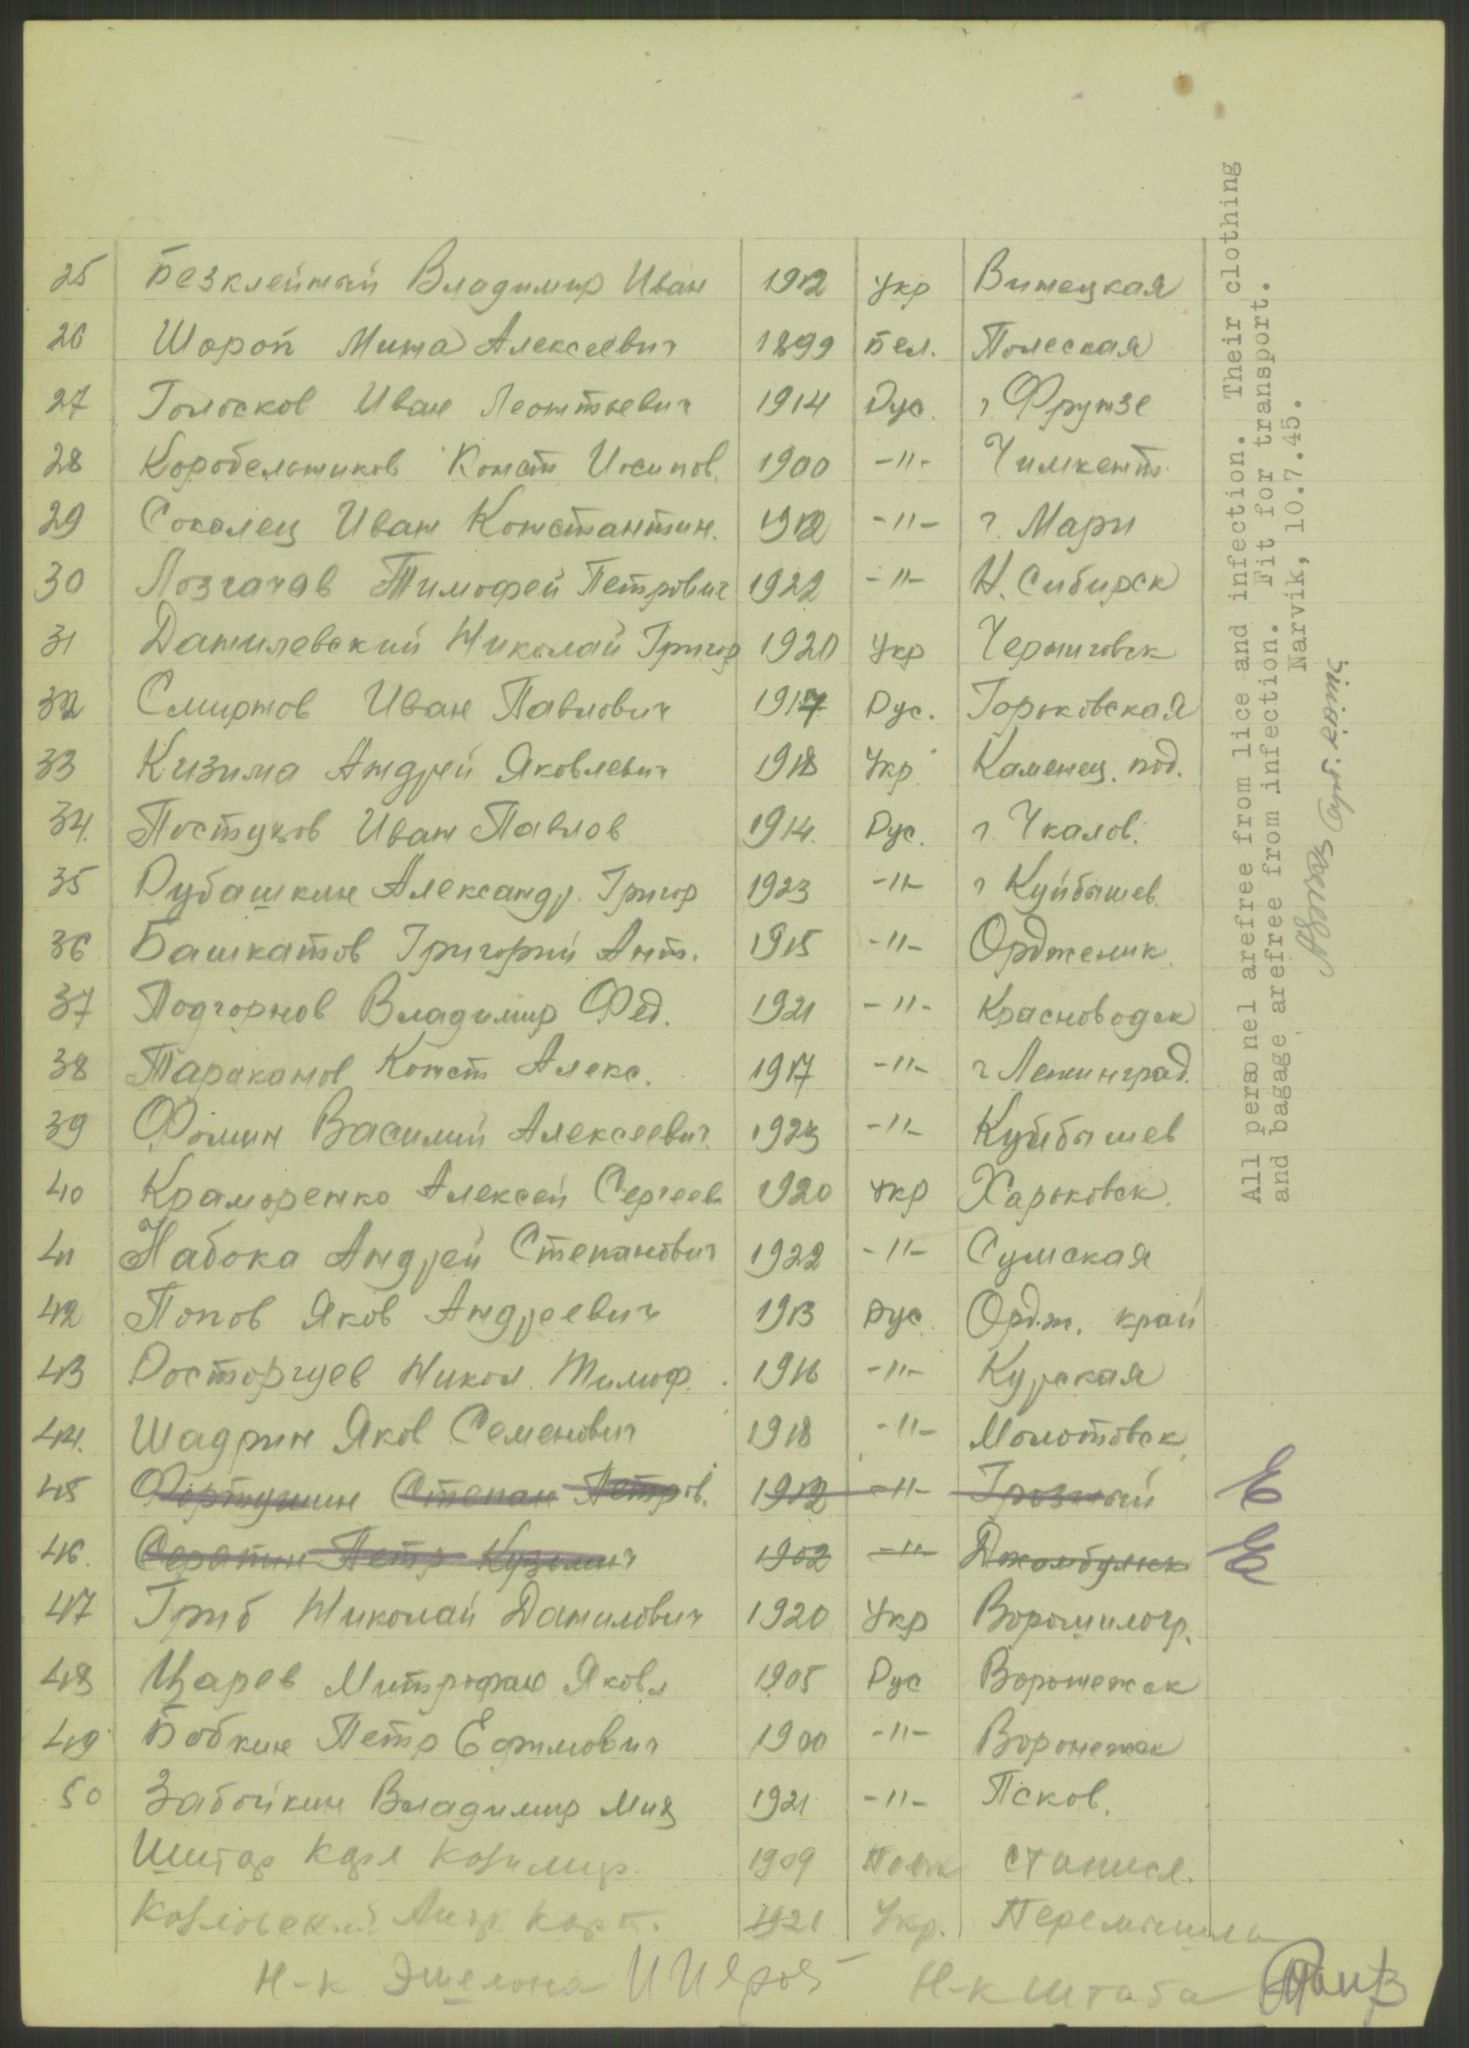 25 Безклейный Владимир Иван 1912 Укр Винецкая
26 Шороп Миша Алексеевич 1899 Бел. Полеская
27 Голосков Иван Леонтьевич 1914 Рус. г Фрунзе
28 Коробельников Конст Иосипов. 1900 -"- Чимкент.
29 Соколец Иван Константин. 1912 -"- г. Мари
30 Лозгачев Тимофей Петрович 1922 -"- Н. Сибирск
31 Данилевский Николай Григор 1920 Укр Черниговск
32 Смирнов Иван Павлович 1917 Рус. Горьковская
33 Кизима Андрей Яковлевич 1918 Укр. Каменец. под.
34. Постухов Иван Павлов 1914. Рус. г. Чкалов.
35 Рубашкин Александр. Григор 1923 -"- г Куйбышев.
36 Башкатов Григорий Ант. 1915 -"- Орджених.
37 Подгорнов Владимир Фед. 1921 -"- Красноводск
38 Тараканов Конст Алекс. 1917 -"- г Ленинград.
39 Фомин Василий Алексеевич. 1923 -"- Куйбышев
40 Краморенко Алексей Сергеев 1920 Укр Харьковск.
41 Набока Андрей Степанович 1922 -"- Сумская
42 Попов Яков Андреевич 1913 Рус. Ордж. край
43 Расторгуев Никол. Тимоф. 1916 -"- Курская
44. Шадрин Яков Семенович 1918 -"- Молотовск
45 Фортунин Степан Петров. 1912 -"- Грозный E
46. Саратин Петр Кузьмич 1902 -"- Джамбулск E
47 Гриб Николай Данилович 1920 Укр Ворошилогр.
48 Царев Митрофан Яковл 1905 Рус Воронежск
49 Бобкин Петр Ефимович 1900 -"- Воронежск
50 Забойкин Владимир Мих 1921 -"- Псков.
Шитар Карл Казимир. 1909 Поляк Станисл.
Козловский Андр. Карп. 1921 Укр. Перемышль
Н-к Эшелона Н-к штаба
All personnel arefree from lice and infection. Their clothing
and bagage arefree from infection. Fit for transport.
Narvik, 10.7.45.